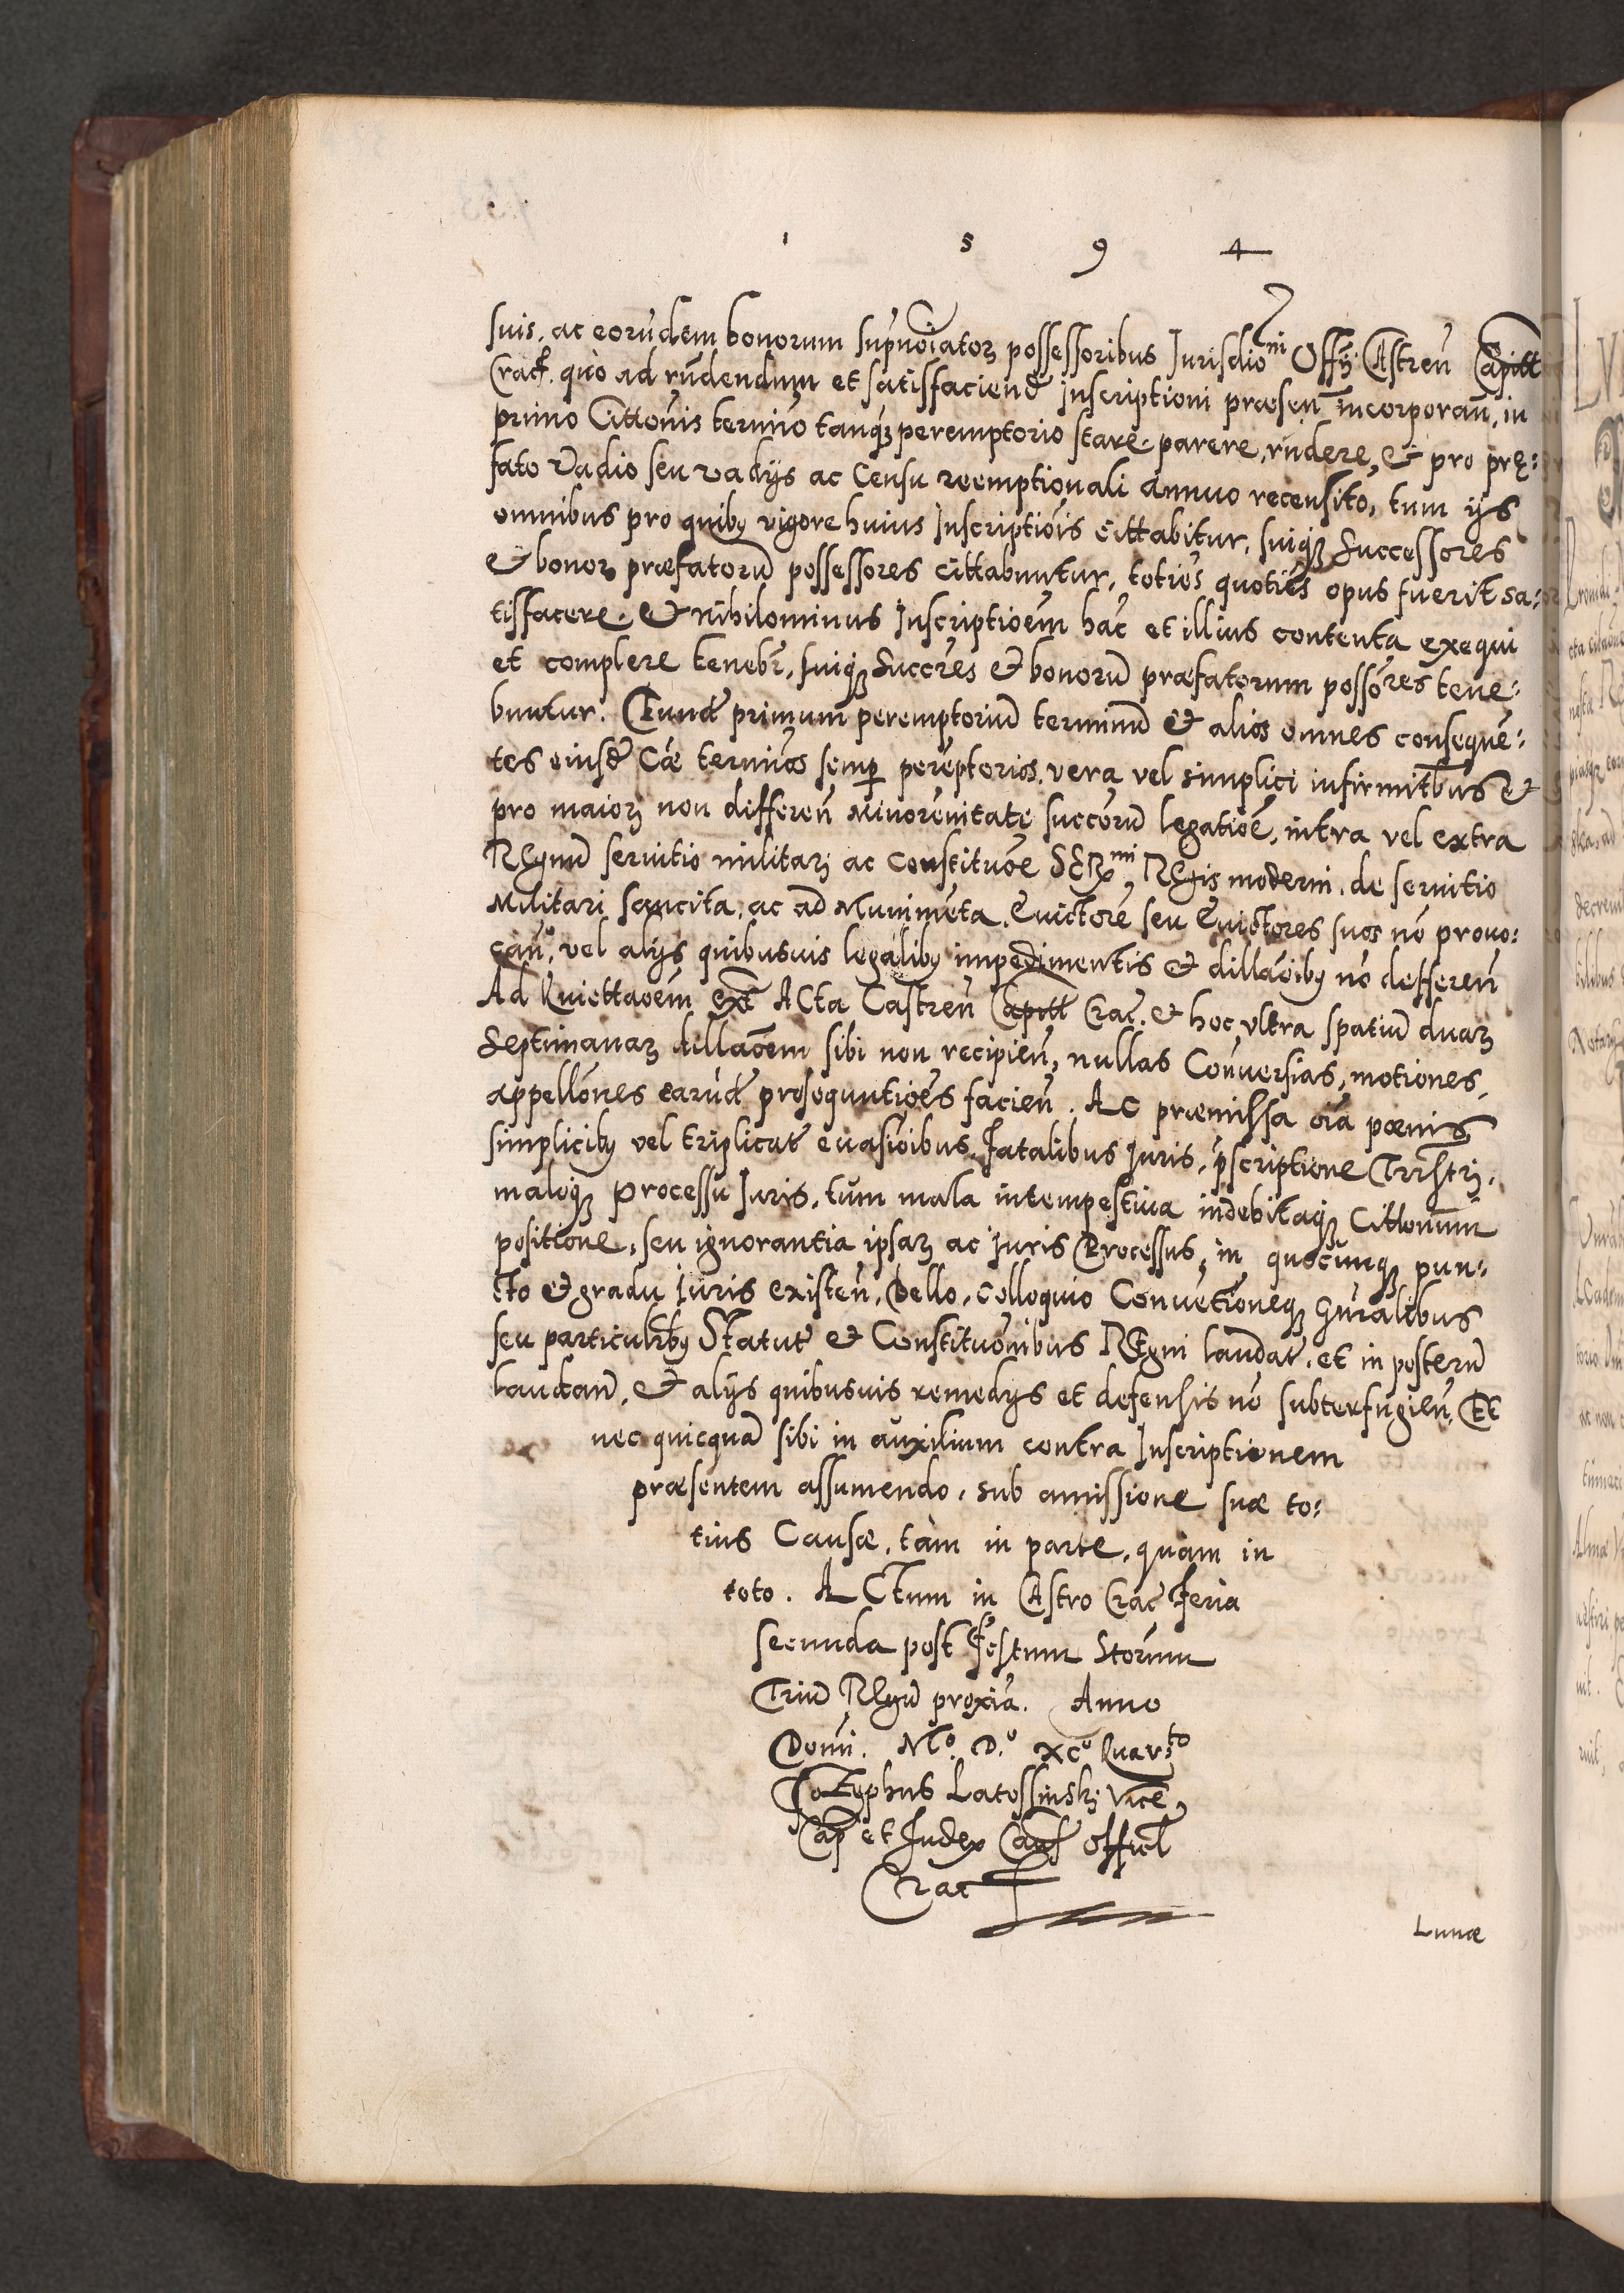 1 5 9 4
suis. ac eorúdem bonorum supnoiatoꝝ possessoribus Jurisdioni Offÿ Castreñ Capitt
Cracf. quò ad rńdendum et satisfaciend Inscriptioni præsen Incorporań, in
primo Citto͠nis termino tanqꝫ peremptorio stare. parere, rńdere, & pro prę:
fato Vadio seu vadÿs ac Censu reemptionali annuo recensito, tum ÿs
omnibus pro quibꝫ vigore huius Inscriptio͠is cittabitur, suiqꝫ Successores
& bonoꝝ præfatorū possessores cittabuntur, totiès quotiès opus fuerit sa:
tisfacere. & nihilominus Inscriptioe͠m hāc et illius contenta exequi
et complere teneb͠r, suiqꝫ Succ͠res & bonorū præfatorum posso͠res tene:
buntur. Eund primum peremptoriū terminū & alios omnes conseque͠:
tes eiusd Cæ terminos semp pere͠ptorios, vera vel simplici infirmitbus &
pro maioꝝ non differen͠ Minorennitate succorū legatioe͠, intra vel extra
Regnū seruitio militarj ac Constituoe͠ SERmi Regis moderni, de seruitio
Militari sancita, ac ad Munimenta. Euictore͠ seu Euictores suos no͠ prouo:
can͠, vel alÿs quibusuis legalibꝫ impedimentis & dillaoibꝫ no͠ defferen͠
Ad Quiettaoe͠m ext Acta Castren͠ Capitt Crac. & hoc vltra spatiū duaꝝ
Septimanaꝝ dillaoe͠m sibi non recipien͠, nullas Conuersias, motiones,
appello͠nes earūd prosequutioe͠s facien͠. Ac præmissa oi͠a poenis
simplicibꝫ vel triplicat euasioibus. Fatalibus Juris, p͠scriptione Trrstrj,
maloqꝫ processu Juris, tum mala intempestiua indebitaqꝫ Citto͠num
positione, seu ignorantia ipsaꝝ ac Juris Processus, in quocunqꝫ pun:
cto & gradu Juris existen͠, Bello, Colloquio Conue͠tioneqꝫ Gn͠ralibus
seu particulrbꝫ Statut & Constituonibus Regni laudat, et in posterū
laudan͠. & alÿs quibusuis remedÿs et defensis no͠ subterfugien͠, Et
nec quicquā sibi in auxilium contra Inscriptionem
præsentem assumendo, sub amissione suæ to:
tius Causæ, tàm in parte, quàm in
toto. ACtum in Castro Crac Feria
secunda post Festum Storum
Triū Regū proxi͠a. Anno
Domi͠. Mo. D.o XCo Quarto
Jozephus Latossinskj Vice
Cap et Judex Caus͠ Officl
Crac
Lunæ